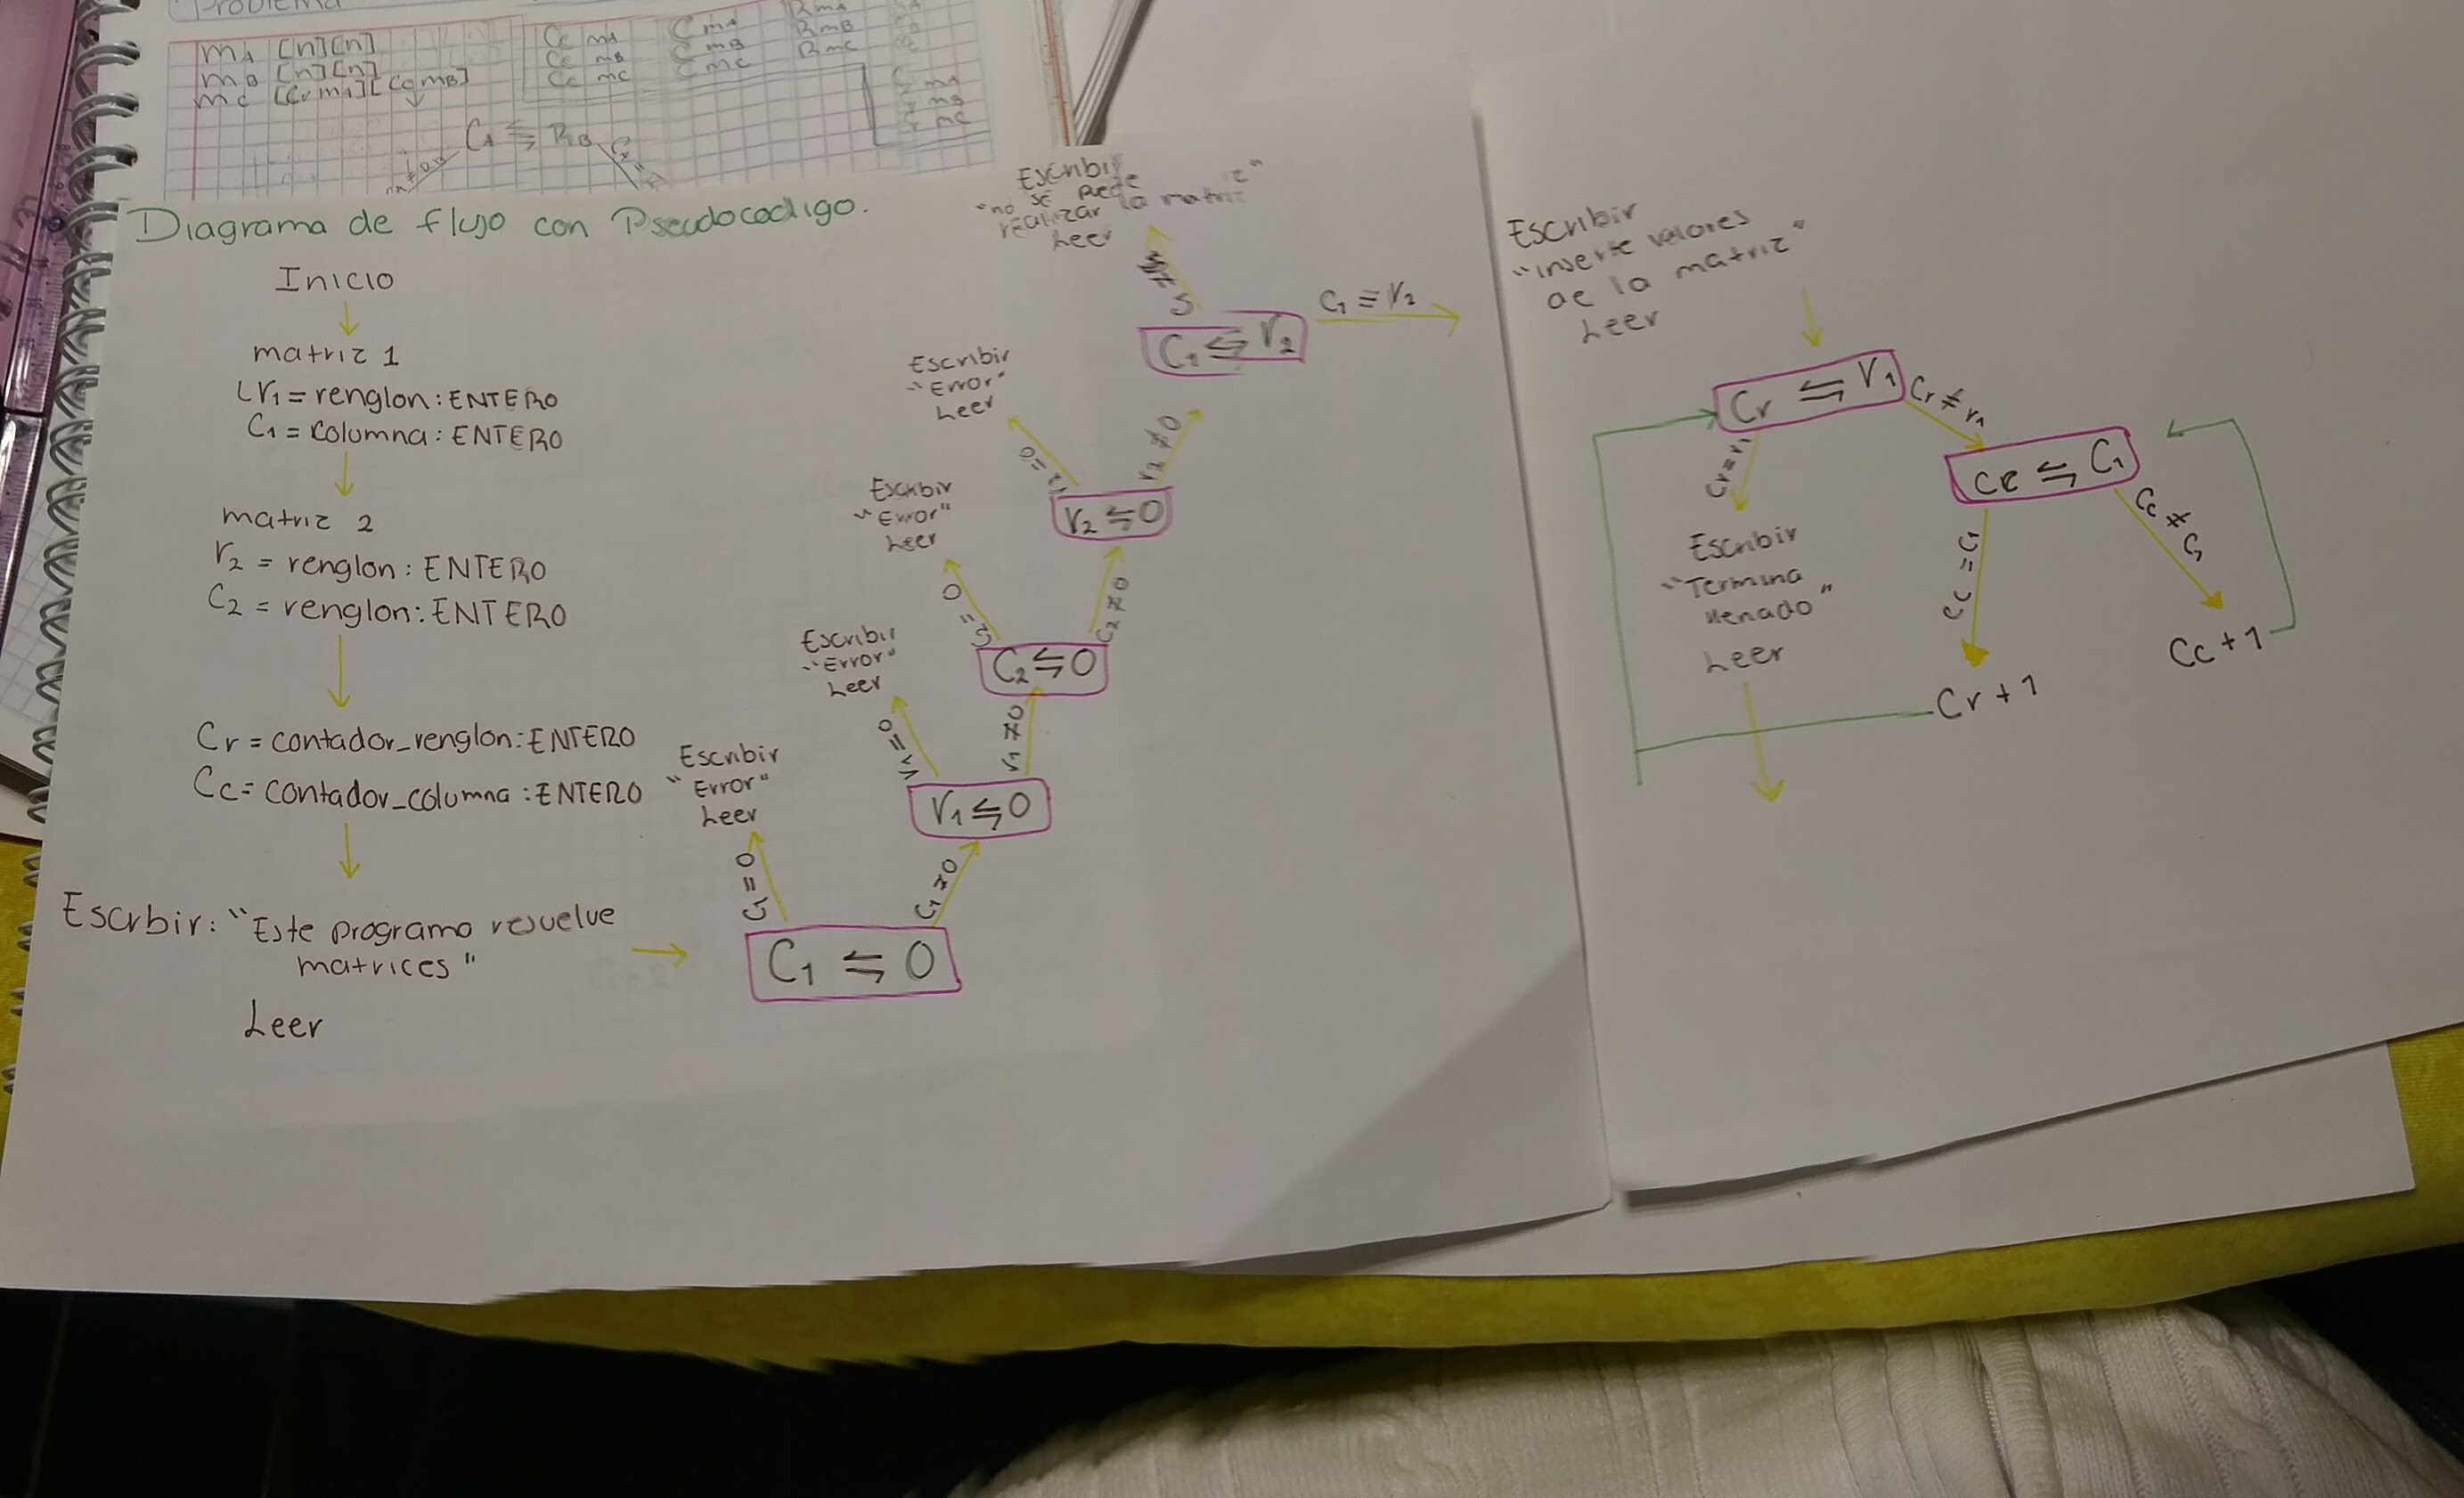 Problema
mA [n][n]
mB [n][n]
mc [Cr mA][Cc mB]
Cc mA
Cc mB
Cc mc
C mA
C mB
C mc
RmA
RmB
Rmc
mA
mB
mc
CA ⇆ RB
Diagrama de flujo con Pseudocodigo.
Inicio
matriz 1
r1 = renglon: ENTERO
C1 = columna: ENTERO
matriz 2
r2 = renglon: ENTERO
C2 = renglon: ENTERO
Cr = contador_renglon: ENTERO
Cc = contador_columna: ENTERO
Escrbir: "Este programo resuelve
matrices"
Leer
C1 ⇆ 0
C1 = 0
Escribir
"Error"
Leer
C1 ≠ 0
r1 ⇆ 0
r1 = 0
Escribir
"Error"
Leer
r1 ≠ 0
C2 ⇆ 0
C2 = 0
Escribir
"Error"
Leer
C2 ≠ 0
r2 ⇆ 0
r2 = 0
Escribir
"Error"
Leer
r2 ≠ 0
C1 ⇆ r2
Escribir
"no se puede
realizar la matriz"
Leer
C1 = r2
Escribir
"inserte valores
de la matriz"
Leer
Cr ⇆ r1
Cr = r1
Escribir
"Termina
llenado"
Leer
Cr ≠ r1
Cc ⇆ C1
Cc = C1
Cr + 1
Cc ≠ C1
Cc + 1